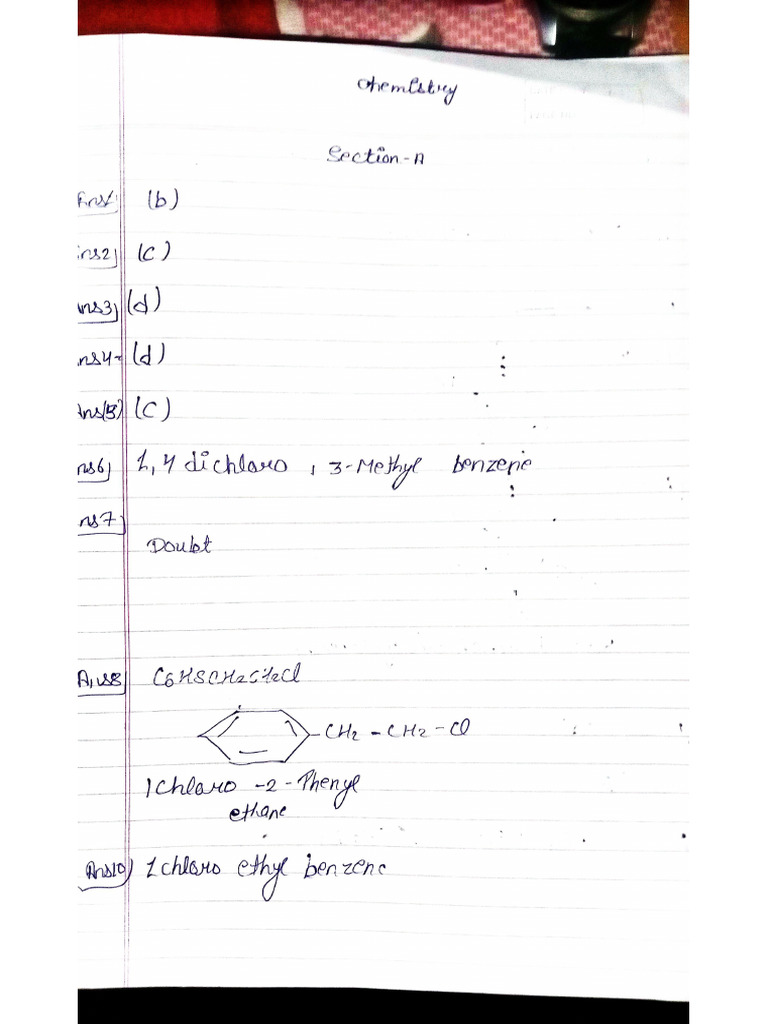 Chemistry
Section-A
Ans1 (b)
ns2) (c)
ns3) (d)
ns4- (d)
Ans(5) (c)
ns6) 1,4 dichloro , 3-Methyl benzene
ns7)
Doubt
Ans8) C6H5CH2CH2Cl
-CH2-CH2-Cl
1Chloro -2-Phenyl
ethane
Ans10) 1chloro ethyl benzene